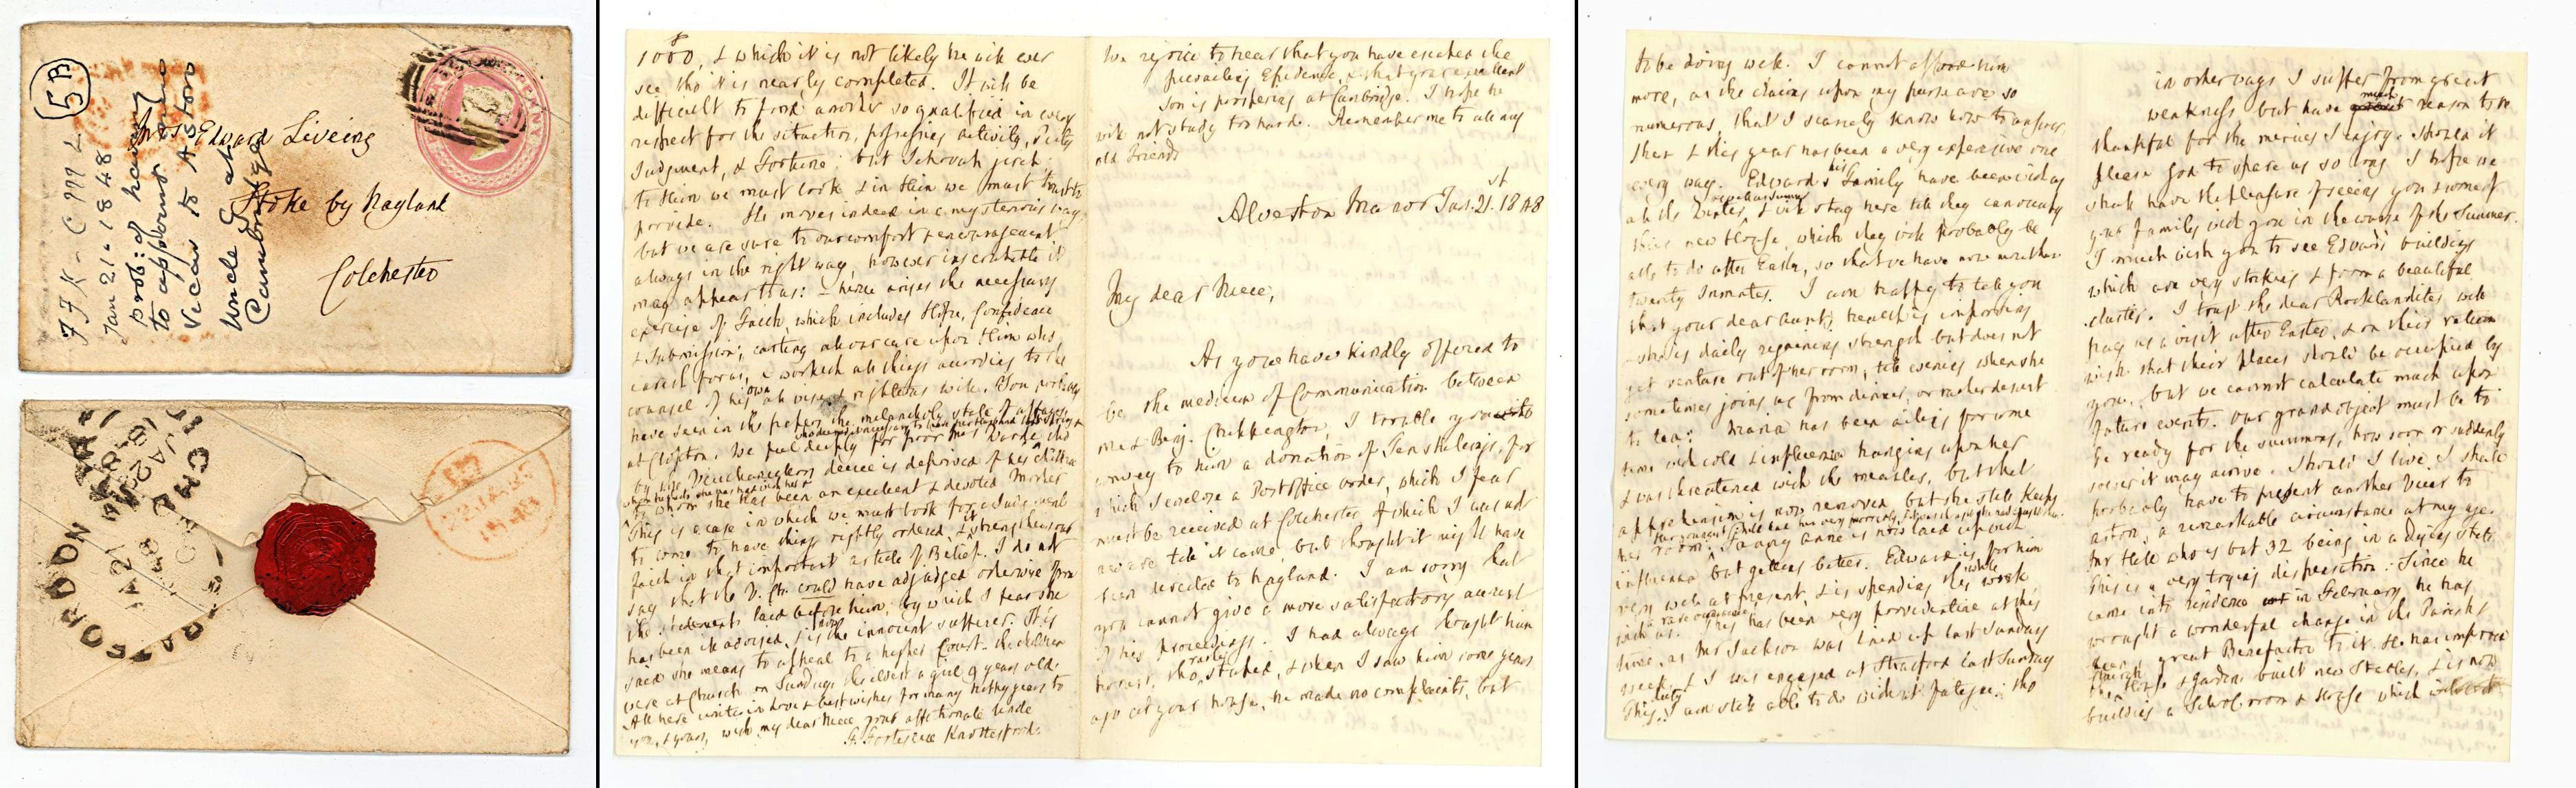 5B
FFK - C M L
Jan 21 - 1848
prob: of having
to appoint some
Vicar to Aston
Uncle G at
Cambridge
Mrs Edward Liveing
Stoke by Nayland
Colchester
POSTAGE
ONE PENNY
STRATFORD ON
JA 21
1848
22 JA 22
1848
1000, & which it is not likely he will ever
see, tho' it is nearly completed. It will be
difficult to find another so qualified in every
respect for the situation, possessing activity, Piety
Judgment, & Fortune; but Jehovah jireh
to Him we must look & in Him we must trust to
provide. He moves indeed in a mysterious way,
but we are sure to our comfort & encouragement
always in the right way, however inscrutable it
may appear to us: hence arises the necessary
exercise of Faith, which includes Hope, Confidence
& Submission; casting all our care upon Him who
careth for us, & worketh all things according to the
counsel of his own all wise & righteous will. You probably
have seen in the papers the melancholy state of affairs
at Clopton. We feel deeply for poor Mrs Warde, who
by the Vice Chancellors decree is deprived of her children
to whom she has been an excellent & devoted Mother
This is a case in which we must look for a Judgment
to come to have things rightly ordered, & it strengthens our
faith in that important article of Belief. I do not
say that the V. Ch. could have adjudged otherwise from
the statements laid before him, by which I fear she
has been ill advised, for she is the innocent sufferer. It is
said she means to appeal to a higher Court. The children
were at Church on Sunday, the eldest a girl 9 years old.
All here unite in Love & best wishes for many happy years to
you, & yours, with my dear Niece your affectionate Uncle
F. Fortescue Knottesford.
We rejoice to hear that you have escaped the
prevailing Epidemic, & that your excellent
Son is prospering at Cambridge. I hope he
will not study too hard. Remember me to all my
old Friends
Alveston Manor Jan. 21st 1848
My dear Niece,
As you have kindly offered to
be the medium of Communication between
me & Benj. Chippington, I trouble you to
convey to him a donation of Ten shillings, for
which I enclose a Post Office order, which I fear
must be received at Colchester of which I was not
aware till it came, but thought it might have
been directed to Nayland. I am sorry that
you cannot give a more satisfactory account
of his proceedings. I had always thought him
honest, tho' rather stupid, & when I saw him some years
ago at your house, he made no complaints, but
to be doing well. I cannot afford him
more, as the claims upon my purse are so
numerous, that I scarcely know how to answer
them & this year has been a very expensive one
every way. Edward & his Family have been with us
all the Winter, & will stay here till they can occupy
their new House, which they will probably be
able to do after Easter, so that we have now more than
twenty Inmates. I am happy to tell you
that your dear Aunt's health is improving
she is daily regaining strength but does not
yet venture out of her room, till evening when she
sometimes joins us from dinner, or rather desert
to tea: Maria has been ailing for some
time with cold & influenza hanging upon her
& was threatened with the measles, but that
apprehension is now removed but she still keeps
her room; Fanny Anne is now laid up with
influenza but getting better. Edward is for him
very well at present, & is spending this whole week
with us. This has been very providential at this
time, as Mr Jackson was laid up last Sunday
week, & I was engaged at Stratford last Sunday
This duty I am still able to do without fatigue: tho
in other ways I suffer from great
weakness but have much reason to be
thankful for the mercies I enjoy. Should it
please God to spare us so long I hope we
shall have the pleasure of seeing you & some of
your family with you in the course of the Summer.
I much wish you to see Edwards buildings
which are very striking & form a beautiful
cluster. I trust the dear Rocklandites will
pay us a visit after Easter, & on their return
wish that their places should be occupied by
you. but we cannot calculate much upon
future events. Our grand object must be to
be ready for the summons, how soon or suddenly
soever it may arrive. Should I live I shall
probably have to present another Vicar to
Aston, a remarkable circumstance at my age.
Mr Hill who is but 32 being in a dying state
This is a very trying dispensation. Since he
came into residence in February he has
wrought a wonderful change in the Parish &
been a great Benefactor to it. He has improved
the House & garden built new Stables, & is now
building a School room & House which will cost